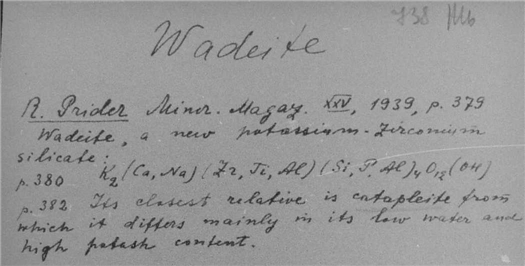 738
Wadeite
R. Prider Miner. Magaz. XXV, 1939, p. 379
Wadeite, a new potassium-zirconium
silicate:
p. 380 K2 (Ca, Na) (Zr, Ti, Al) (Si, P, Al)4 O12 (OH)
p. 382 Its closest relative is catapleite from
which it differs mainly in its low water and
high potash content.